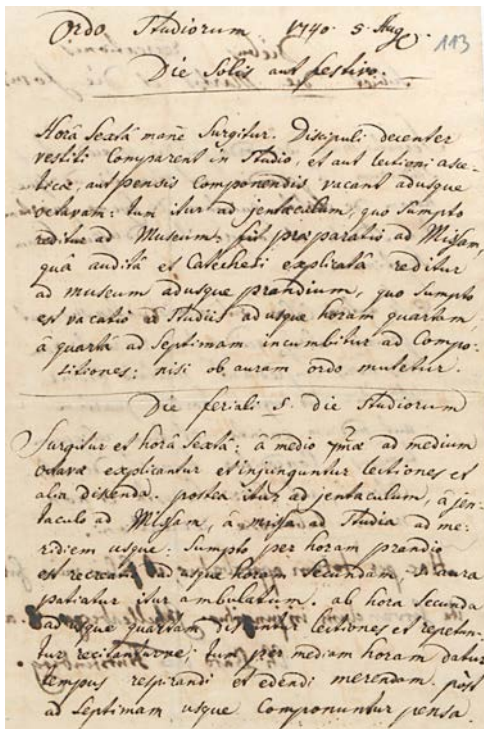 Ordo Studiorum 1740. 5. Aug.
113
Die Solis aut festivo.
Horâ Sextâ manè Surgitur. Discipuli decenter
vestiti Comparent in Studio, et aut lectioni asce-
ticæ, aut pensis Componendis vacant adusque
octavam: tum itur ad jentaculum, quo Sumpto
reditur ad Museum: fit præparatio ad Missam,
quâ auditâ et Catechesi explicatâ reditur
ad museum adusque prandium, quo Sumpto
est vacatio à Studiis adusque horam quartam,
à quartâ ad Septimam incumbitur ad Compo-
sitiones: nisi ob auram ordo mutetur.
Die feriali S. die Studiorum
Surgitur et horâ Sextâ: à medio 7mæ ad medium
octavæ explicantur et injunguntur lectiones et
alia discenda. postea itur ad jentaculum, à jen-
taculo ad Missam, à missa ad Studia ad me-
ridiem usque. Sumpto per horam prandio
est recreatio adusque horam Secundam, si aura
patiatur itur ambulatum. ab hora Secunda
adusque quartam discuntur lectiones et repetun-
tur recitanturve; tum per mediam horam datur
tempus respirandi et edendi merendam. pòst
ad Septimam usque Componuntur pensa.